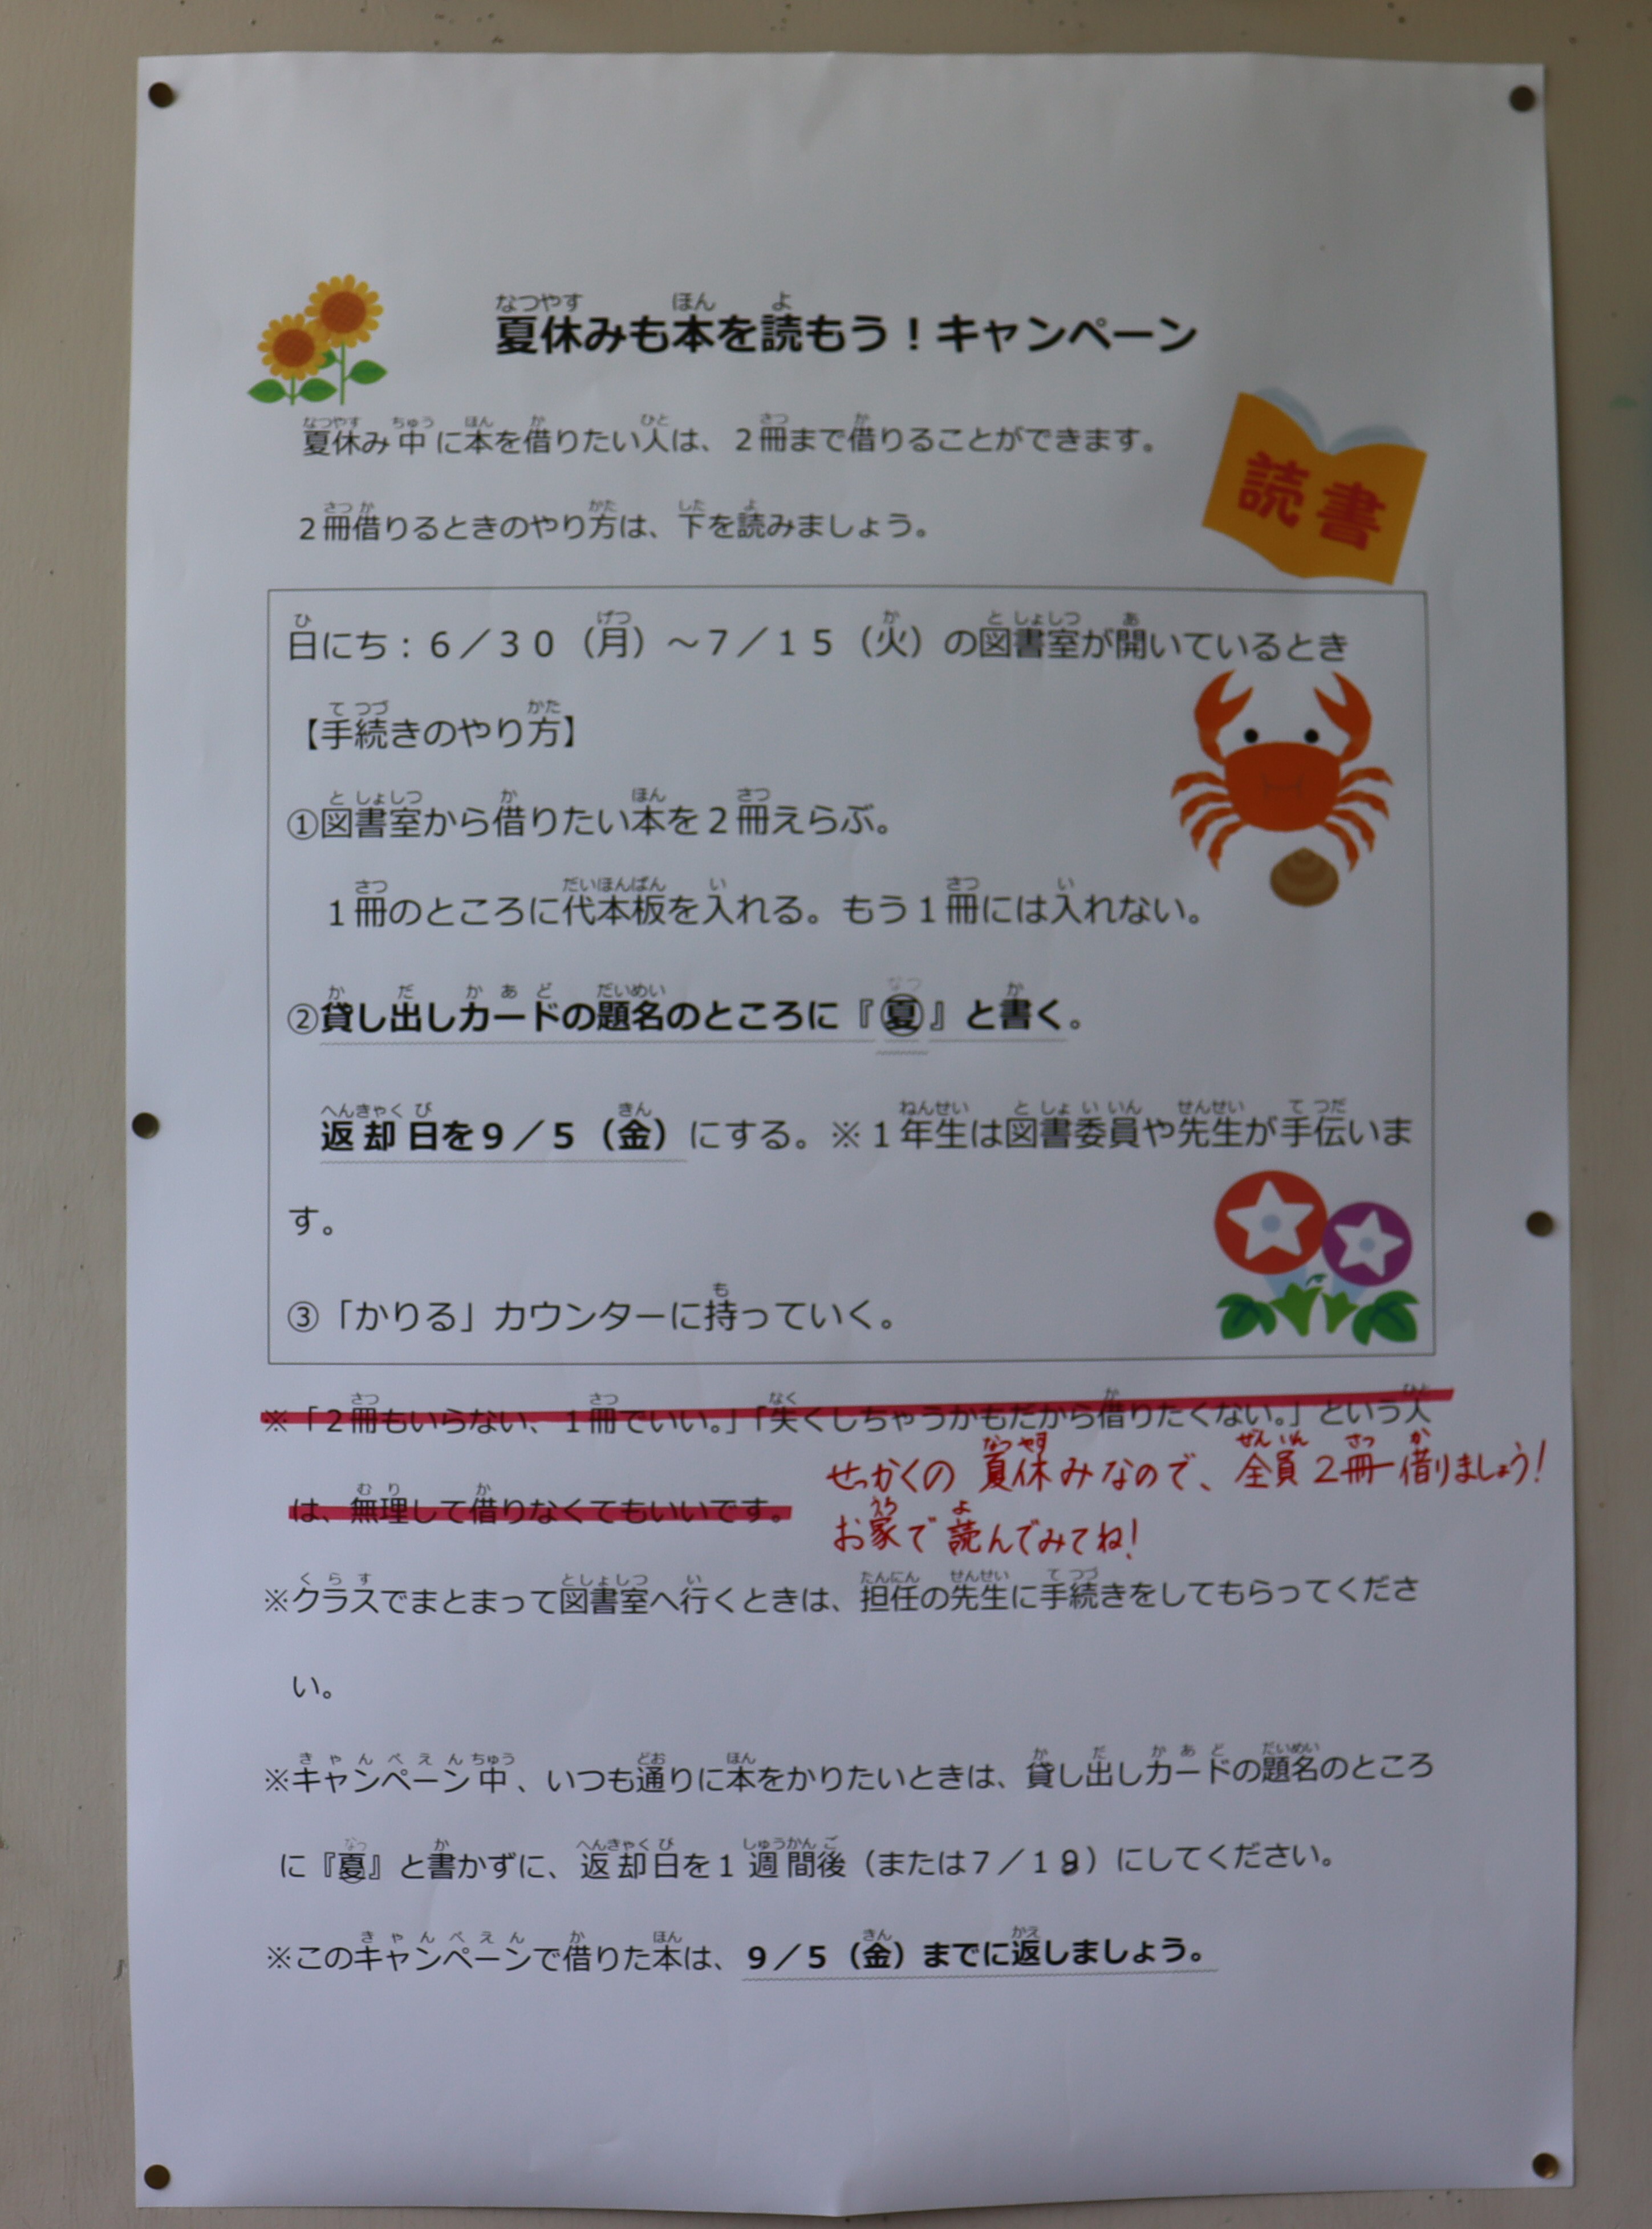 夏休みも本を読もう！キャンペーン
夏休み中に本を借りたい人は、２冊まで借りることができます。
２冊借りるときのやり方は、下を読みましょう。
読書
日にち：６／３０（月）～７／１５（火）の図書室が開いているとき
【手続きのやり方】
①図書室から借りたい本を２冊えらぶ。
１冊のところに代本板を入れる。もう１冊には入れない。
②貸し出しカードの題名のところに『㊰夏』と書く。
返却日を９／５（金）にする。※１年生は図書委員や先生が手伝いま
す。
③「かりる」カウンターに持っていく。
※「２冊もいらない、１冊でいい。」「失くしちゃうかもだから借りたくない。」という人
は、無理して借りなくてもいいです。
せっかくの夏休みなので、全員２冊借りましょう！
お家で読んでみてね！
※クラスでまとまって図書室へ行くときは、担任の先生に手続きをしてもらってくださ
い。
※キャンペーン中、いつも通りに本をかりたいときは、貸し出しカードの題名のところ
に『夏』と書かずに、返却日を１週間後（または７／１９）にしてください。
※このキャンペーンで借りた本は、９／５（金）までに返しましょう。